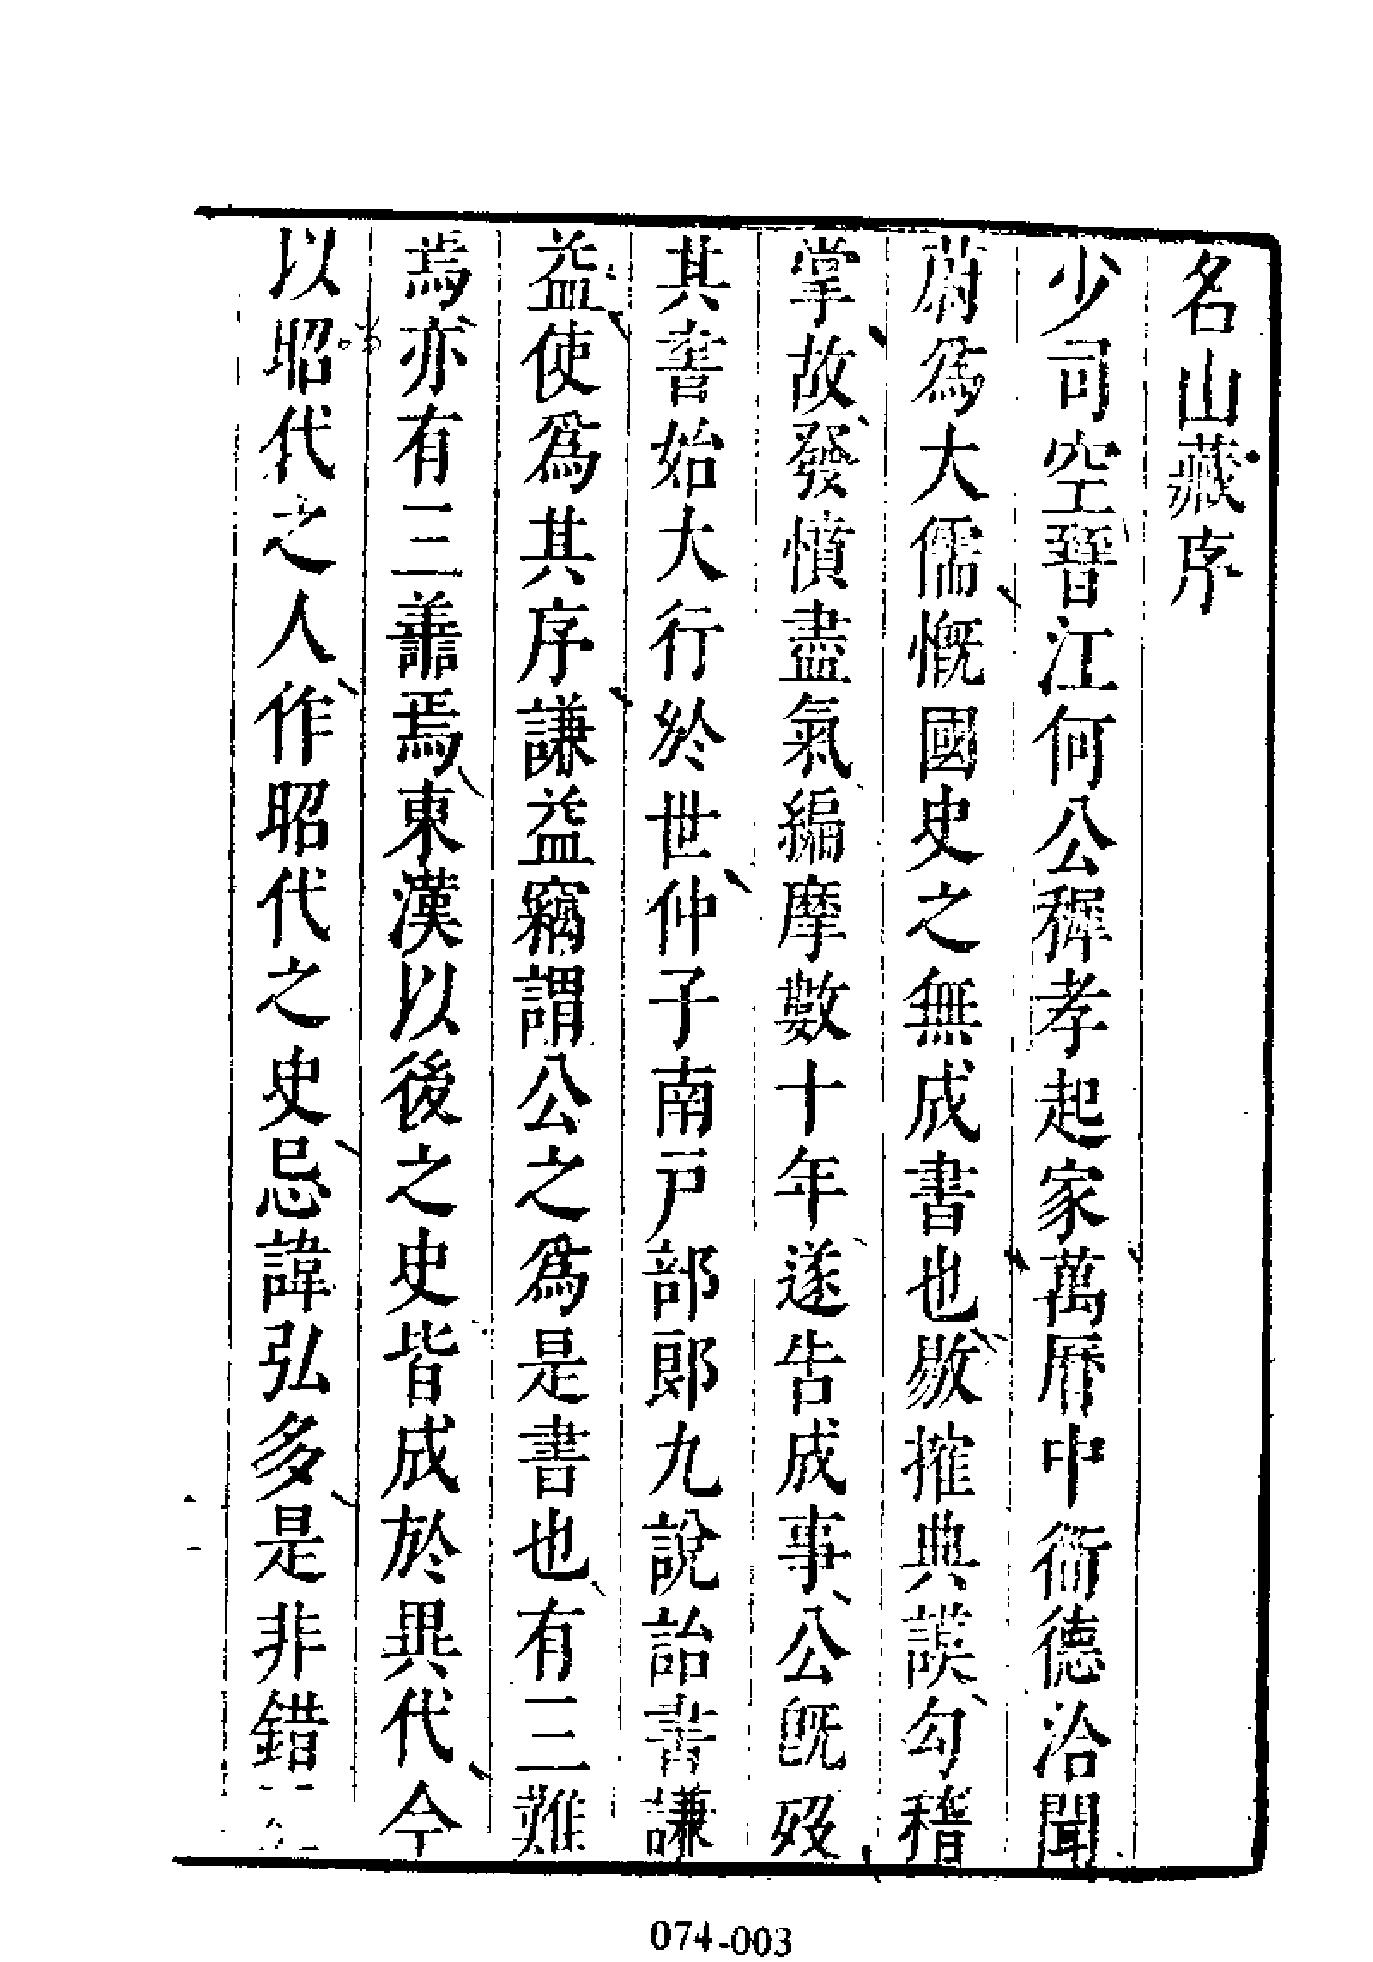 名山藏序
少司空晉江何公穉孝起家萬曆中衜德洽聞
蔚為大儒慨國史之無成書也敭搉典謨勾稽
掌故發憤盡氣編摩數十年遂告成事公旣歿
其書始大行於世仲子南戶部郞九說詒書謙
益使爲其序謙益竊謂公之爲是書也有三難
焉亦有三譱焉東漢以後之史皆成於異代今
以昭代之人作昭代之史忌諱弘多是非錯
074-003